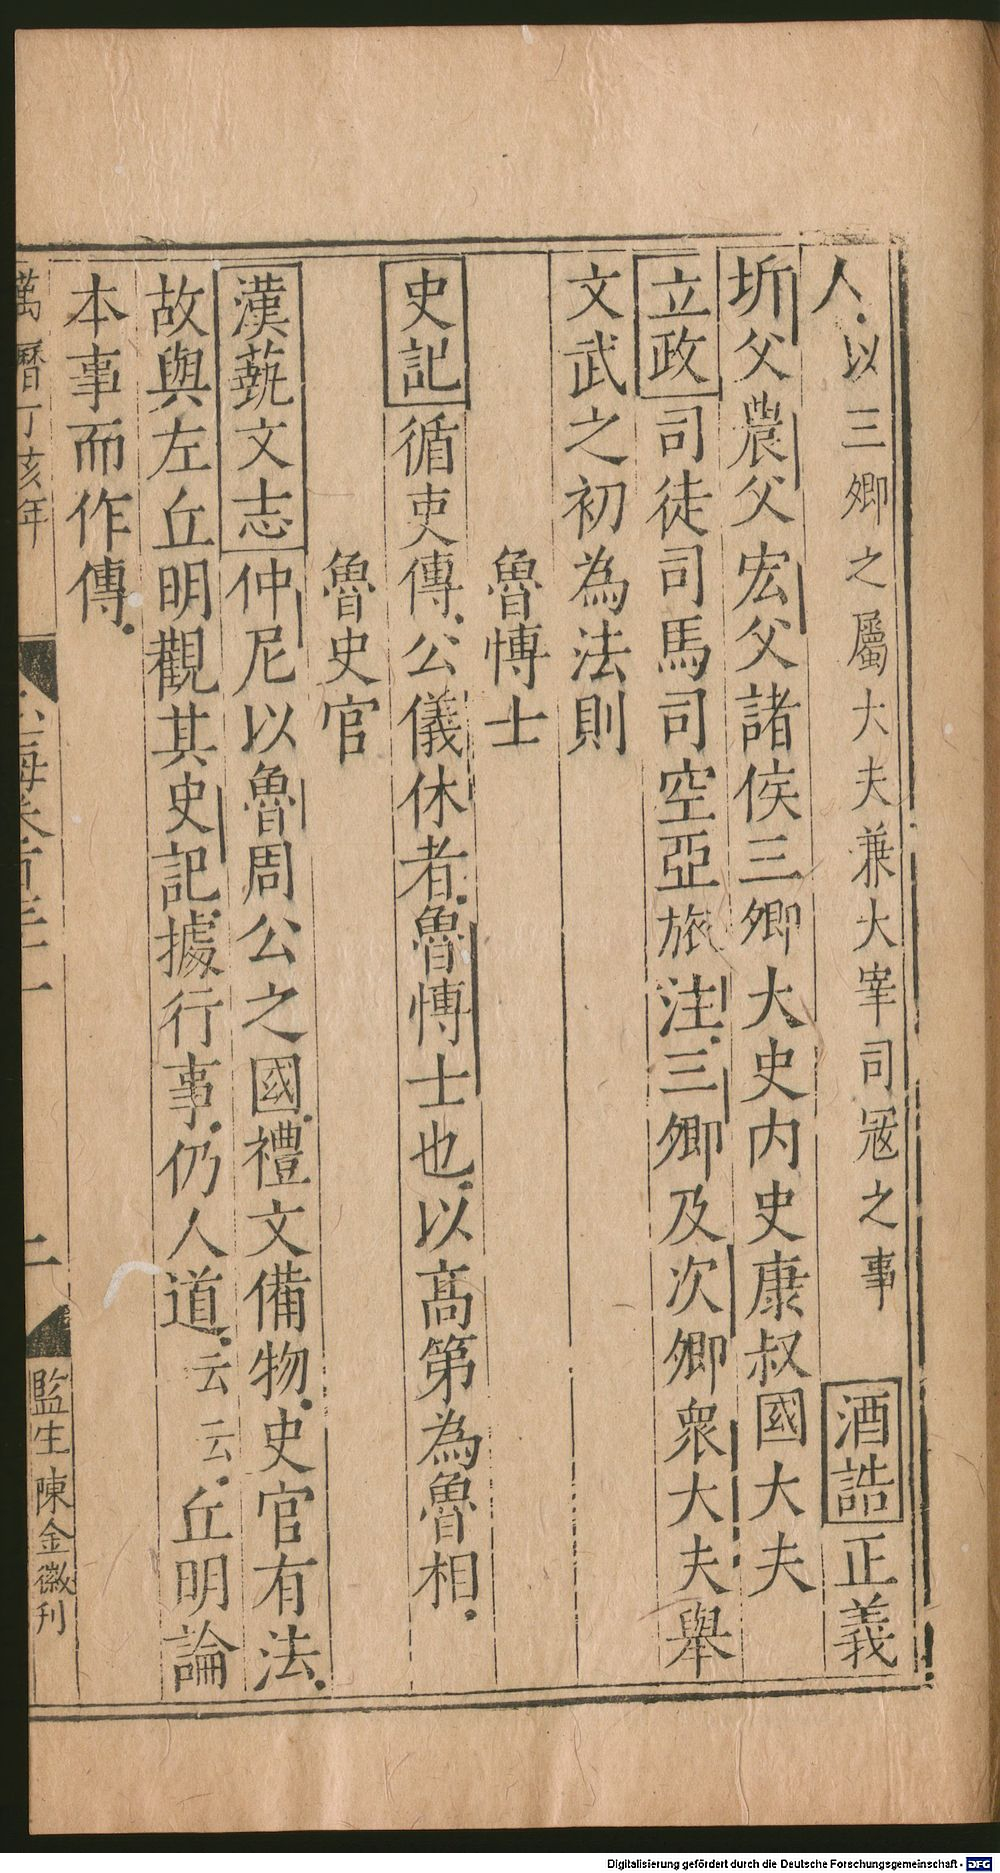 人以三卿之屬大夫兼大宰司冦之事酒誥正義
圻父農父宏父諸侯三卿大史内史康叔國大夫
立政司徒司馬司空亞旅注三卿及次卿衆大夫舉
文武之初為法則
魯愽士
史記循吏傳公儀休者魯愽士也以髙第為魯相
魯史官
漢蓺文志仲尼以魯周公之國禮文備物史官有法
故與左丘明觀其史記據行事仍人道云云丘明論
本事而作傳
萬曆丁亥年
海卷百三十一
二
監生陳金徽刋
Digitalisierung gefördert durch die Deutsche Forschungsgemeinschaft - DFG